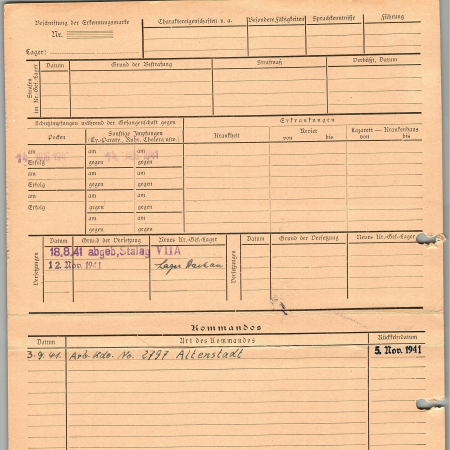 Beschriftung der Erkennungsmarke
Nr.
Lager:
Charaktereigenschaften u. a.
Besondere Fähigkeiten
Sprachkenntnisse
Führung
Strafen im Kr.-Gef.-Lager
Datum
Grund der Bestrafung
Strafmaß
Verbüßt, Datum
Schutzimpfungen während der Gefangenschaft gegen
Erkrankungen
Pocken
Sonstige Impfungen
(Ty.-Paraty., Ruhr, Cholera usw.)
Krankheit
Revier
von bis
Lazarett — Krankenhaus
von bis
am am am
Erfolg gegen gegen
am am am
Erfolg gegen gegen
am am am
Erfolg gegen gegen
am am
gegen gegen
Versetzungen
Datum
Grund der Versetzung
Neues Kr.-Gef.-Lager
Versetzungen
Datum
Grund der Versetzung
Neues Kr.-Gef.-Lager
18.8.41 abgeb. Stalag VIIA
12. Nov. 1941 Lager Dachau
Kommandos
Datum
Art des Kommandos
Rückkehrdatum
3.9.41. Arb. Kdo. No. 2797 Altenstadt 5. Nov. 1941